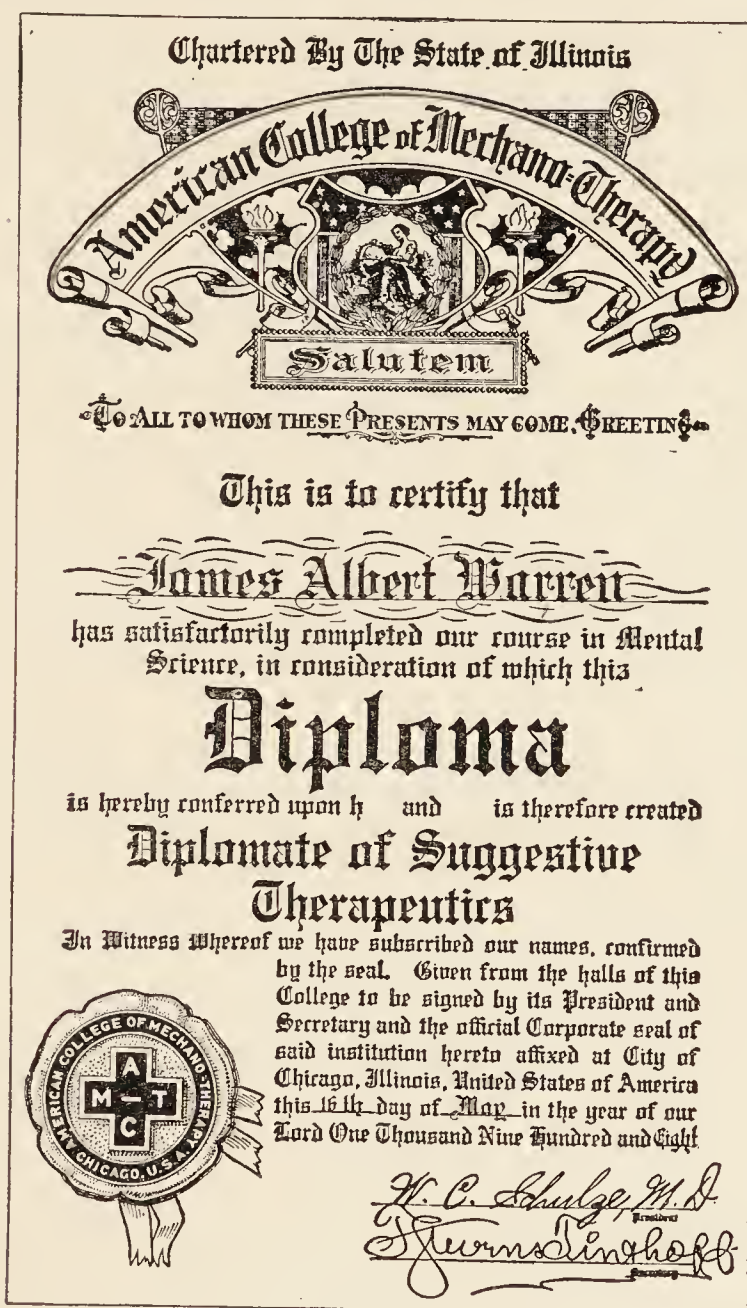 Chartered By The State of Illinois
American College of Mechano-Therapy
Salutem
To All to whom these Presents may come, Greeting
This is to certify that
James Albert Warren
has satisfactorily completed our course in Mental
Science, in consideration of which this
Diploma
is hereby conferred upon h and is therefore created
Diplomate of Suggestive
Therapeutics
In Witness Whereof we have subscribed our names, confirmed
by the seal. Given from the halls of this
College to be signed by its President and
Secretary and the official Corporate seal of
said institution hereto affixed at City of
Chicago, Illinois, United States of America
this 16th day of May in the year of our
Lord One Thousand Nine Hundred and Eight
AMERICAN COLLEGE OF MECHANO-THERAPY
A
M T
C
CHICAGO, U.S.A.
W. C. Schulze, M. D.
President
Secretary